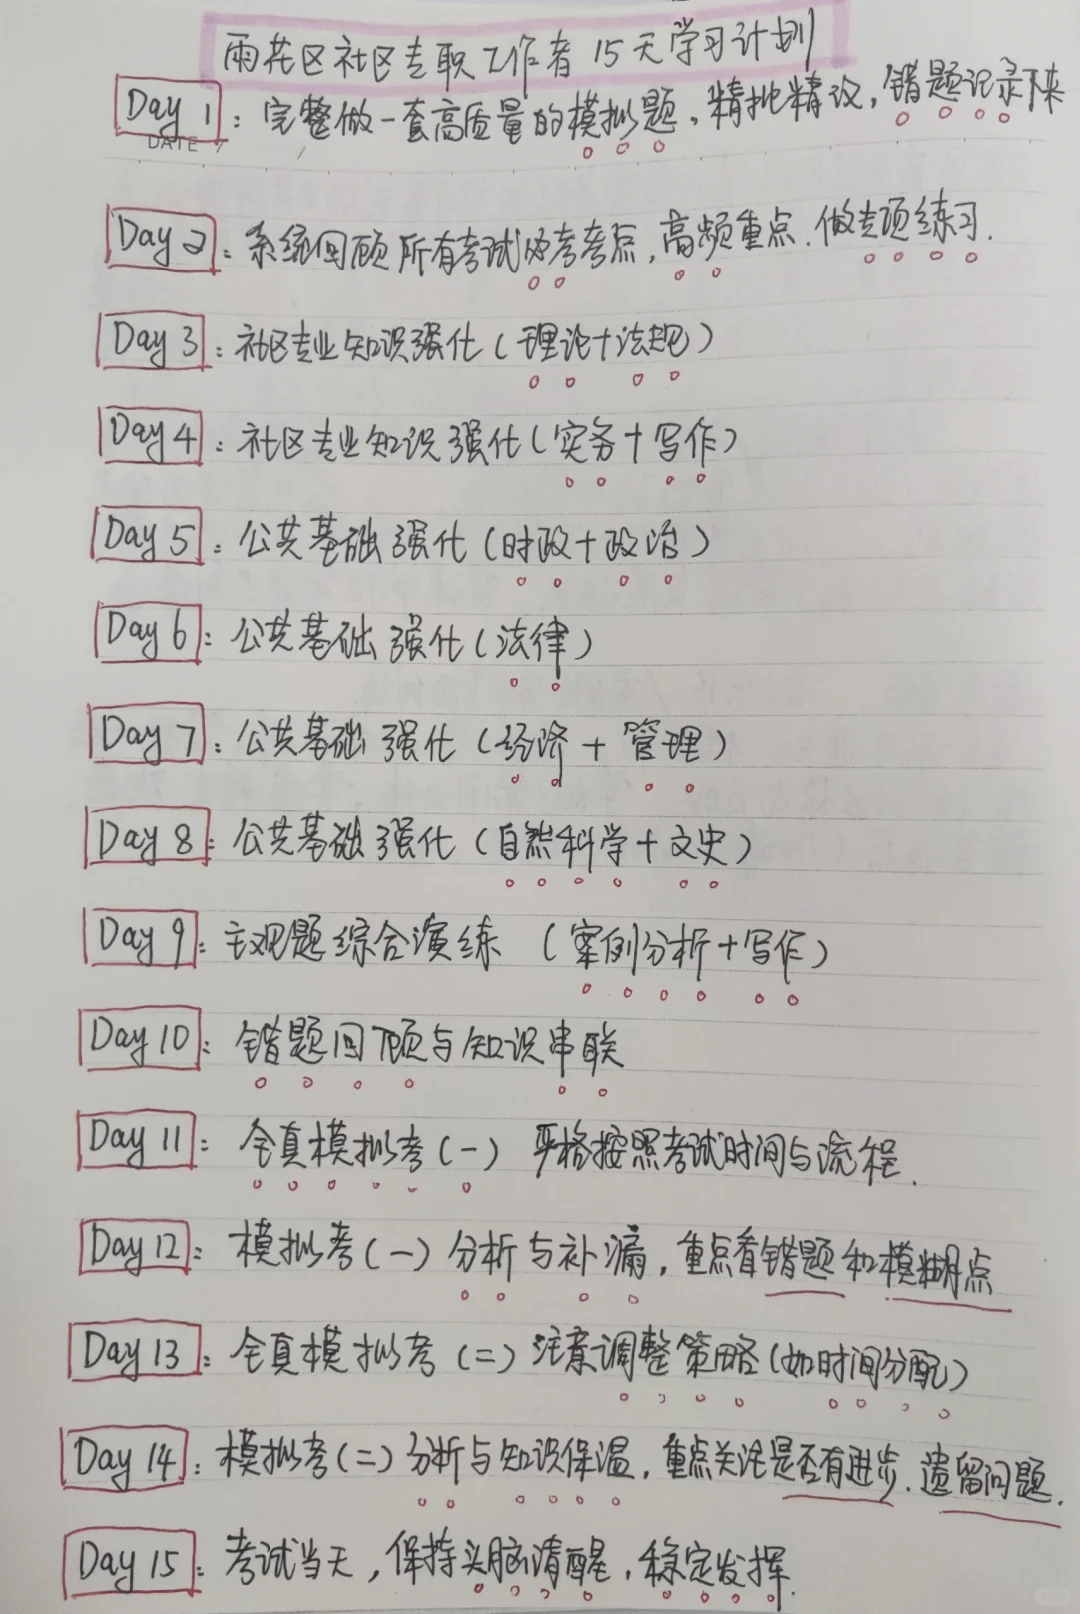 雨花区社区专职工作者15天学习计划
Day 1：完整做一套高质量的模拟题，精批精议，错题记录下来
DATE
Day 2：系统回顾所有考试必考考点，高频重点．做专项练习．
Day 3：社区专业知识强化（理论+法规）
Day 4：社区专业知识强化（实务+写作）
Day 5：公共基础强化（时政+政治）
Day 6：公共基础强化（法律）
Day 7：公共基础强化（经济+管理）
Day 8：公共基础强化（自然科学+文史）
Day 9：主观题综合演练（案例分析+写作）
Day 10：错题回顾与知识串联
Day 11：全真模拟考（一）严格按照考试时间与流程．
Day 12：模拟考（一）分析与补漏，重点看错题和模糊点
Day 13：全真模拟考（二）注意调整策略（如时间分配）
Day 14：模拟考（二）分析与知识保温，重点关注是否有进步．遗留问题．
Day 15：考试当天，保持头脑清醒，稳定发挥．